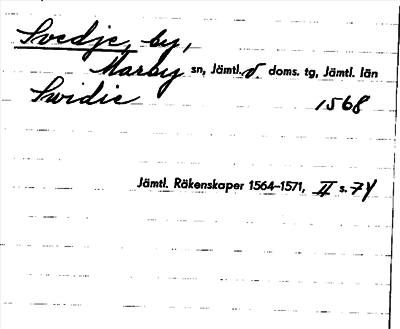 Svedje, by,
Marby sn, Jämtl. v. doms. tg, Jämtl. län
Swidie 1568
Jämtl. Räkenskaper 1564-1571, II s. 74